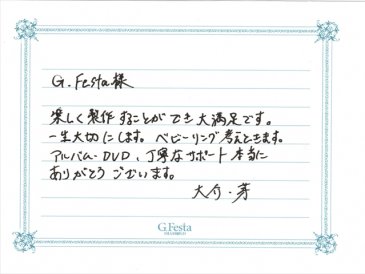 G.Festa様
楽しく製作することができ大満足です。
一生大切にします。ベビーリング考えときます。
アルバム・DVD、丁寧なサポート本当に
ありがとうございます。
大介・芽
G.Festa